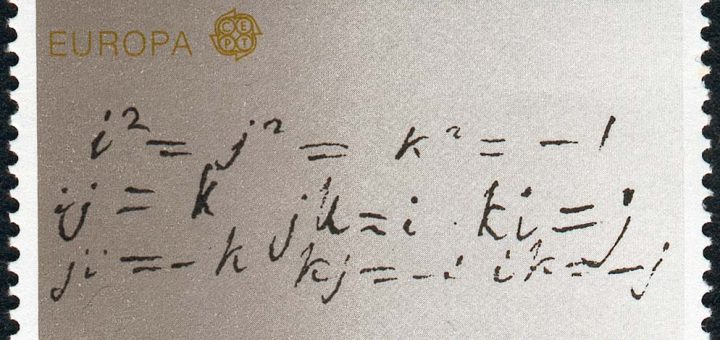 EUROPA CEPT
i² = j² = k² = -1
ij = k jk = i ki = j
ji = -k kj = -i ik = -j